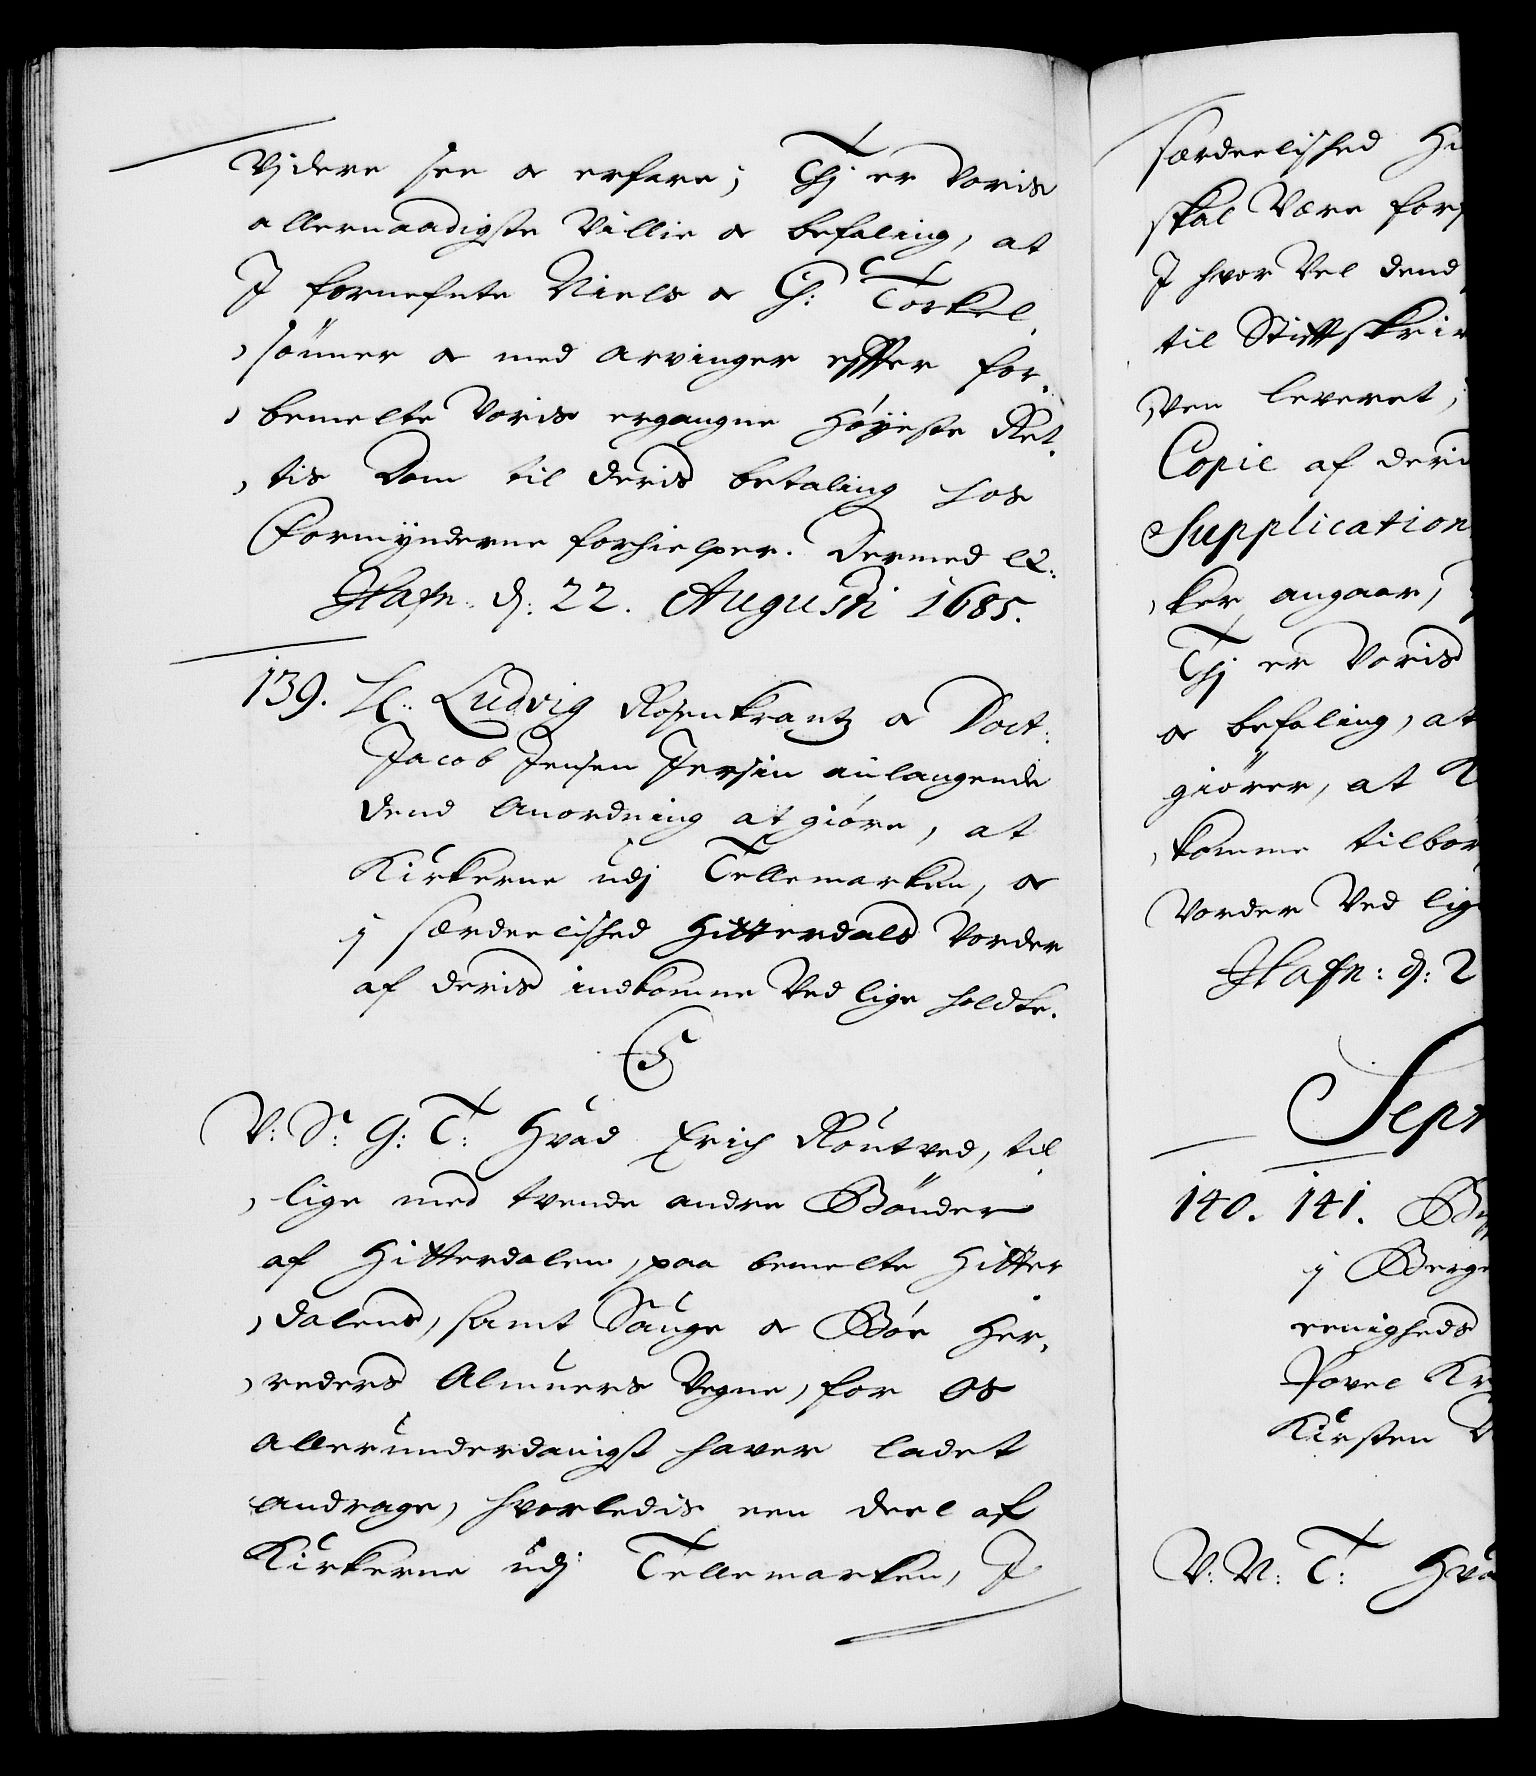 Vjdere see og erfare; Thj er Voris
allernaadigste Villie og befaling, at
J fornefnte Niels og Ch: Torkel,
,sönner og med arvinger effter for,
,bemelte Voris ergangne Höyeste Ret,
,tis Dom til deris betaling hos
Formÿnderne forhielper. Dermed etc:
Hafn: d: 22. Augusti 1685.
139. H: Ludvig Rosenkrantz og Doct:
Jacob Jensen Jersin anlangende
dend Anordning at giöre, at
Kirkerne udj Tellemarken, og
j særdeelished Hitterdals Vorder
af deris indkomne Ved lige holdte.
C5
V: S: G: T: Hvad Erich Röntved, til,
,lige med tvende andre Bönder
af Hitterdalen, paa bemelte Hitter
,dalens, samt Sauge og Böe Her,
,reders Almuers Vegne, for Os
allerunderdanigst haver ladet
andrage, hvorledis een deel af
Kirkerne udj Tellemarken, J
særdeelished Hi
skal Være for
J hvor Vel dend
til Stifftskri
,ven leveret,
Copie af deris
Supplication
,ker angaar,
Thj er Voris
og befaling, at
giörer, at
,komme tilbör
Vorder Ved lig
Hafn: d: 2
Sept
140. 141.
j Berge
eenigheds
Povel Kr
Kirsten
V: N: T: Hva